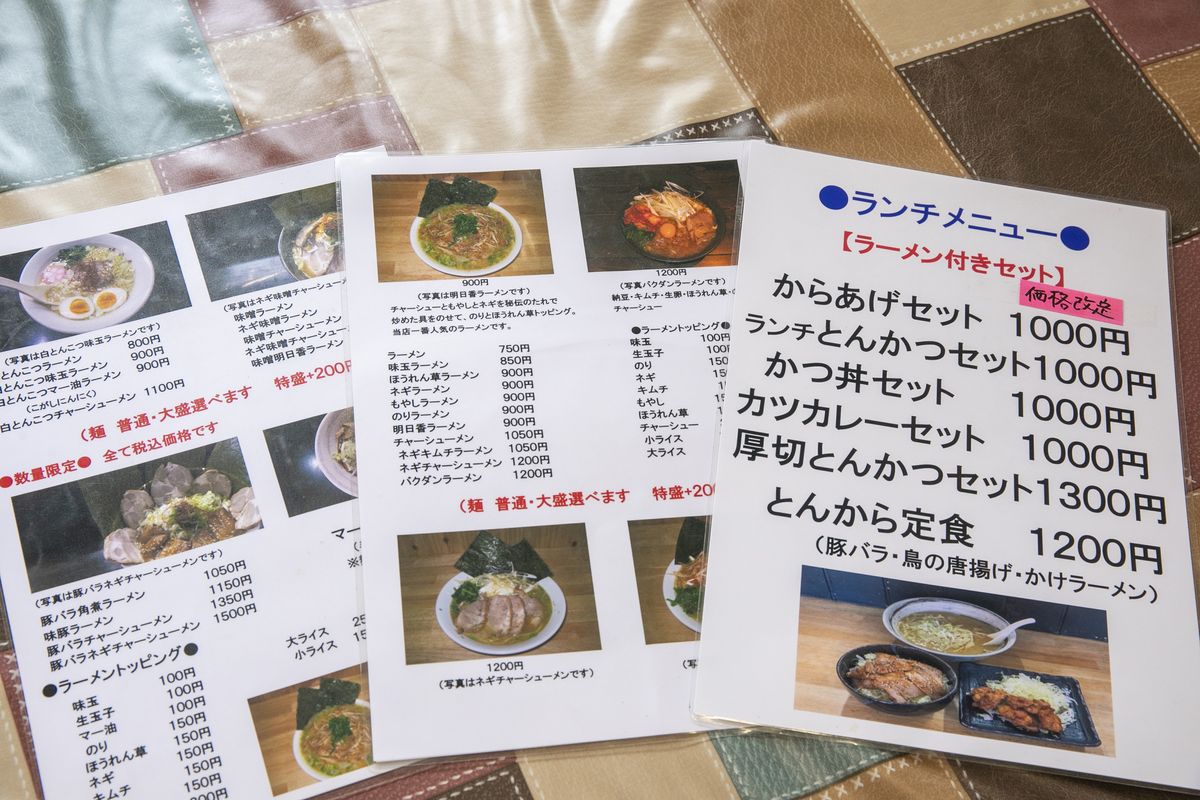 (写真は白とんこつ味玉ラーメンです)
とんこつラーメン 800円
白とんこつ味玉ラーメン 900円
白とんこつマー油ラーメン 900円
(こがしにんにく)
白とんこつチャーシューメン 1100円
(写真はネギ味噌チャーシュー
味噌ラーメン
ネギ味噌ラーメン
味噌チャーシューメン
ネギ味噌チャーシュー
味噌明日香ラーメン
(麺 普通・大盛選べます 特盛+200円
●数量限定● 全て税込価格です
(写真は豚バラネギチャーシューメンです)
豚バラ角煮ラーメン 1050円
味豚ラーメン 1150円
豚バラチャーシューメン 1350円
豚バラネギチャーシューメン 1500円
マー
大ライス 25
小ライス 15
●ラーメントッピング●
味玉 100円
生玉子 100円
マー油 100円
のり 150円
ほうれん草 150円
ネギ 150円
キムチ 150円
900円
(写真は明日香ラーメンです)
チャーシューともやしとネギを秘伝のたれで
炒めた具をのせて、のりとほうれん草トッピング。
当店一番人気のラーメンです。
1200円
(写真バクダンラーメンです)
納豆・キムチ・生卵・ほうれん草・
チャーシュー
ラーメン 750円
味玉ラーメン 850円
ほうれん草ラーメン 900円
ネギラーメン 900円
もやしラーメン 900円
のりラーメン 900円
明日香ラーメン 900円
チャーシューメン 1050円
ネギキムチラーメン 1050円
ネギチャーシューメン 1200円
バクダンラーメン 1200円
●ラーメントッピング●
味玉 100円
生玉子 100
のり 15
ネギ 15
キムチ 15
もやし
ほうれん草
チャーシュー
小ライス
大ライス
(麺 普通・大盛選べます 特盛+200
1200円
(写真はネギチャーシューメンです)
(写
●ランチメニュー●
【ラーメン付きセット】
価格改定
からあげセット 1000円
ランチとんかつセット1000円
かつ丼セット 1000円
カツカレーセット 1000円
厚切とんかつセット1300円
とんから定食 1200円
(豚バラ・鳥の唐揚げ・かけラーメン)